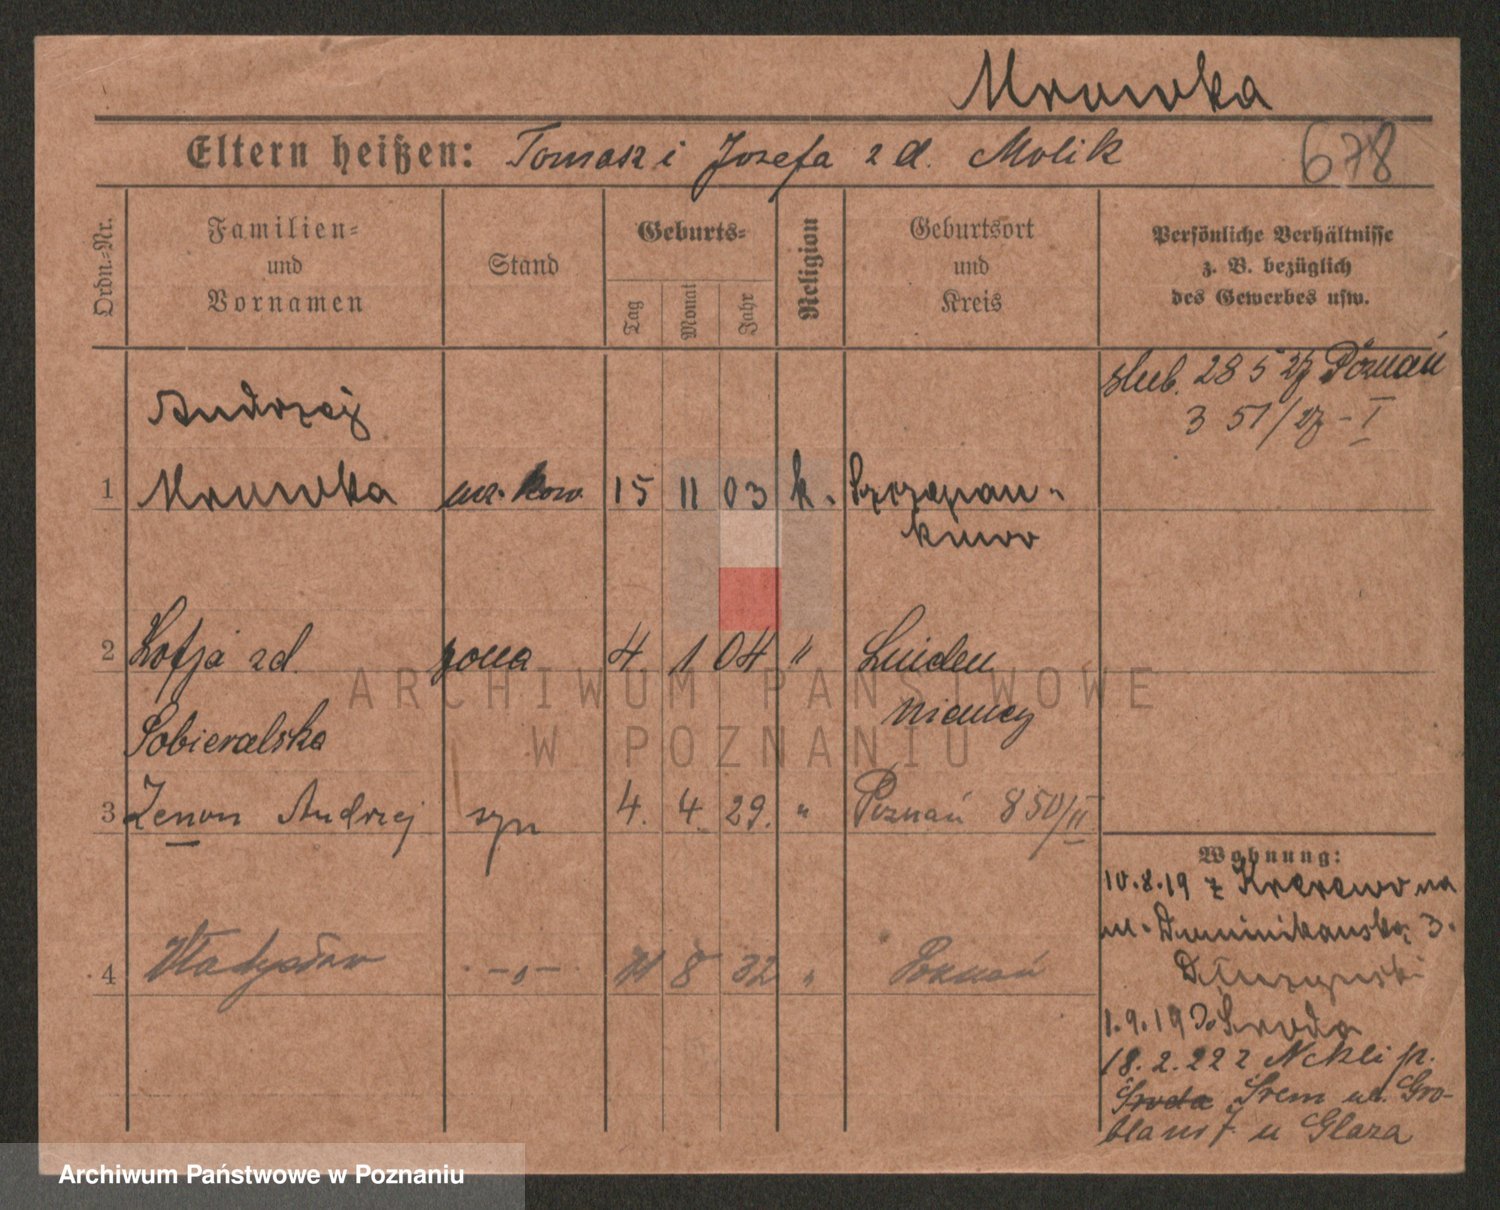 Mrowka
Eltern heißen: Tomasz i Józefa z d. Molik
678
Ordn.=Nr.
Familien=
und
Vornamen
Stand
Geburts=
Tag
Monat
Jahr
Religion
Geburtsort
und
Kreis
Persönliche Verhältnisse
z. B. bezüglich
des Gewerbes usw.
ślub. 28 5 27 Poznań
351/27 - I
Andrzej
1 Mrowka ucz. kow. 15 11 03 k. Szczepan-
kowo
2 Zofja zd. żona 4 1 04 " Linden
Niemcy
Sobieralska
3 Zenon Andrzej syn 4. 4. 29. " Poznań 850/II
4 Władysław -"- 8 32 " Poznań
Wohnung:
10.8.19 z na
ul. Dominikańską 3.
1.9.19 do Środa
18.2.22 z Nekli p.
Środa Śrem ul. Gro-
blana 7 u Glaza
ARCHIWUM PAŃSTWOWE
W POZNANIU
Archiwum Państwowe w Poznaniu